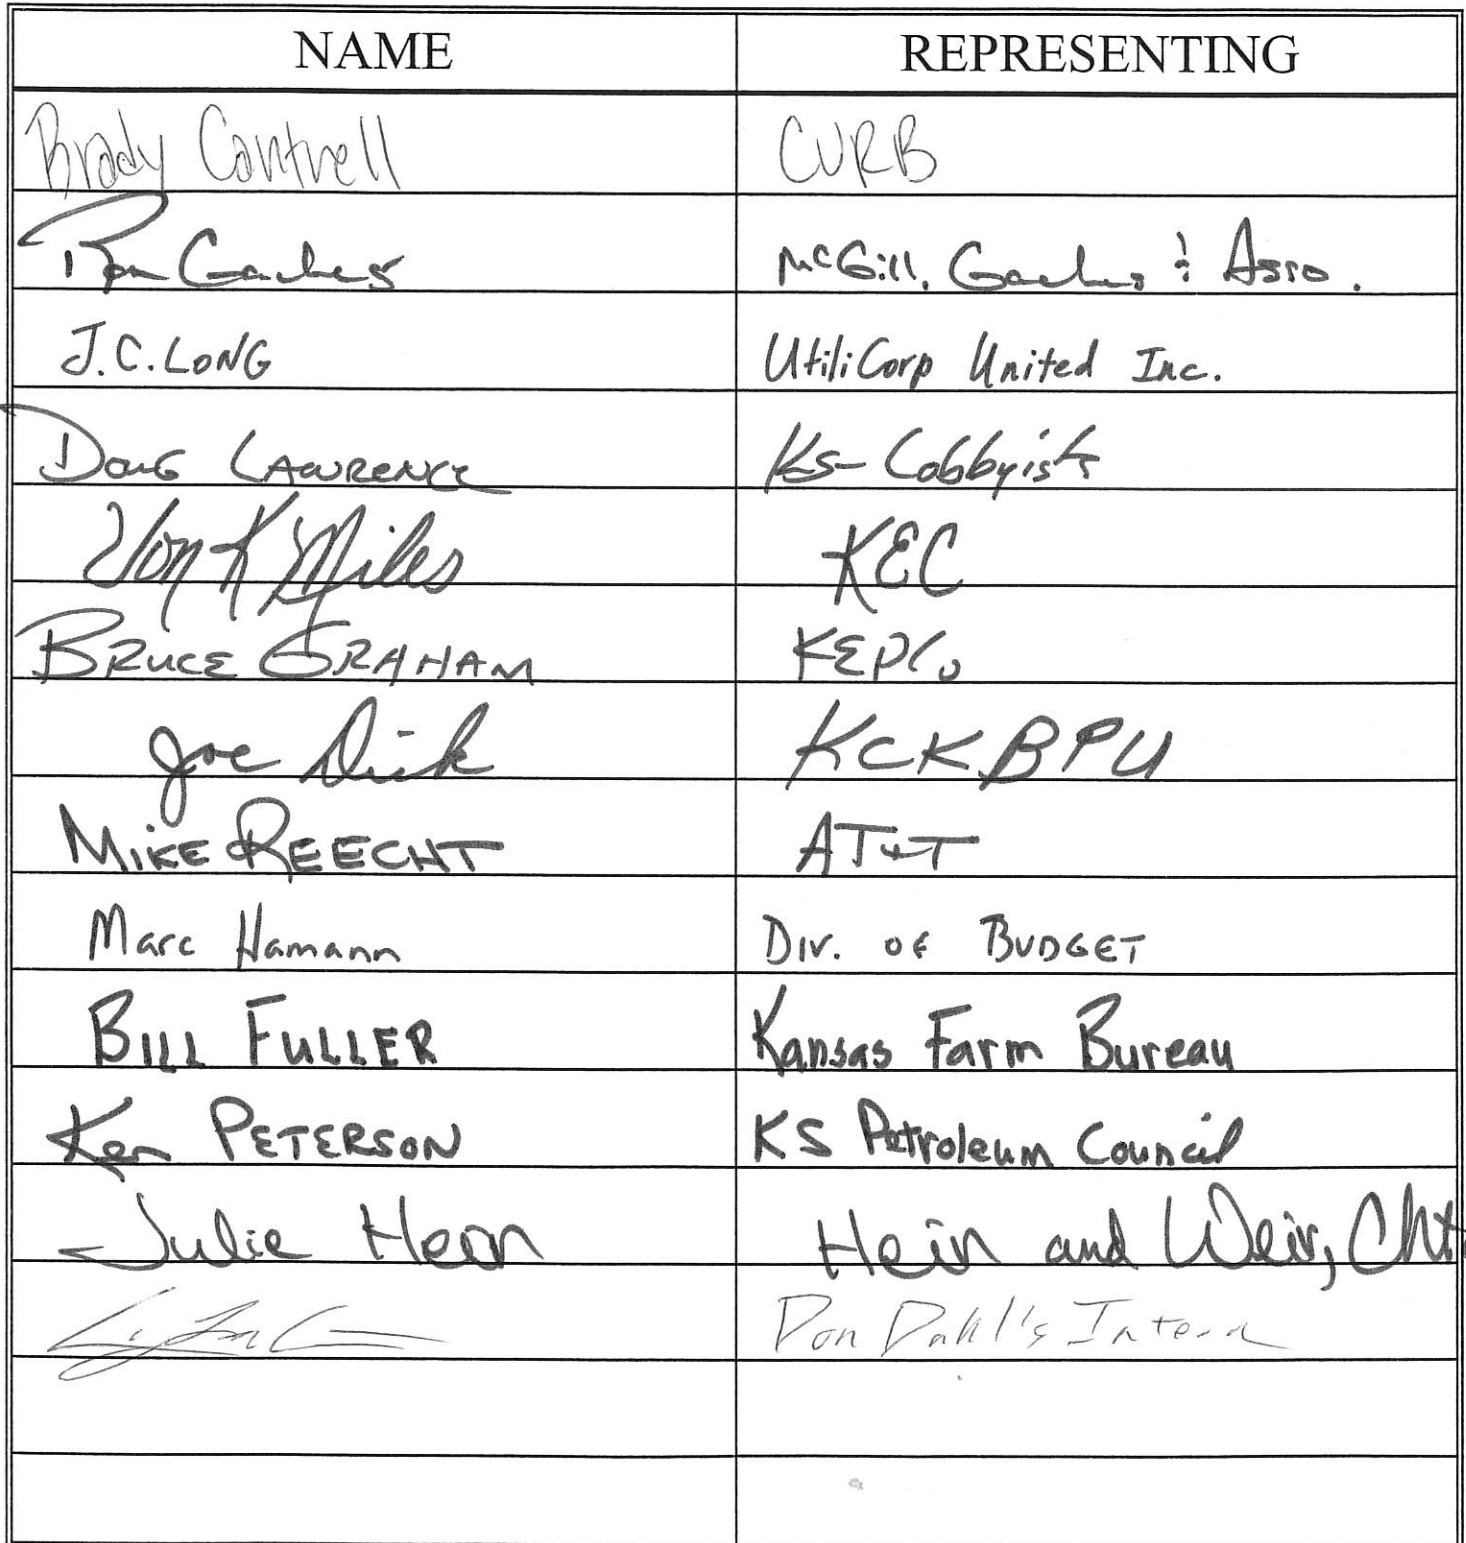 NAME REPRESENTING
Brady Cantrell CURB
Ron Gaches McGill, Gaches & Asso.
J.C. LONG UtiliCorp United Inc.
DOUG LAWRENCE KS-Lobbyists
Von K Miles KEC
BRUCE GRAHAM KEPCo
Joe Dick KCK BPU
MIKE REECHT AT&T
Marc Hamann DIV. OF BUDGET
BILL FULLER Kansas Farm Bureau
Ken PETERSON KS Petroleum Council
Julie Hein Hein and Weir, Cht
Don Dahl's Intern